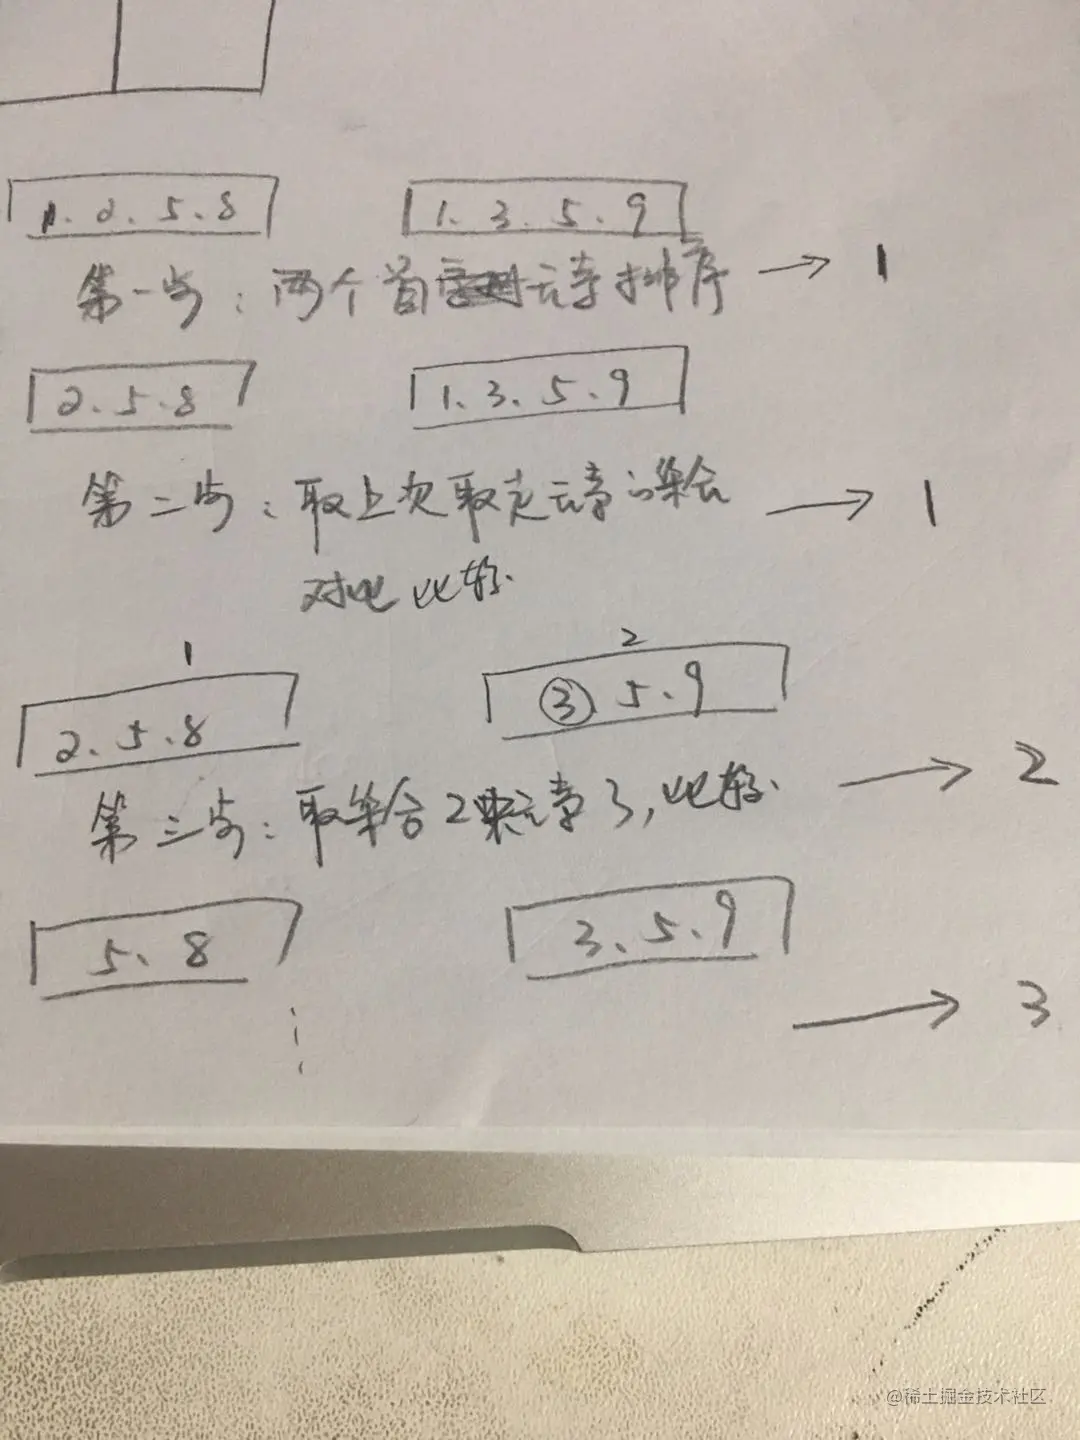 1、2、5、8 1、3、5、9
第一步：两个首元素排序 → 1
2、5、8 1、3、5、9
第二步：取上次取走元素的集合 → 1
对比比较.
1 2
2、5、8 ③、5、9
第三步：取集合2来元素3，比较. → 2
5、8 3、5、9
→ 3
@稀土掘金技术社区